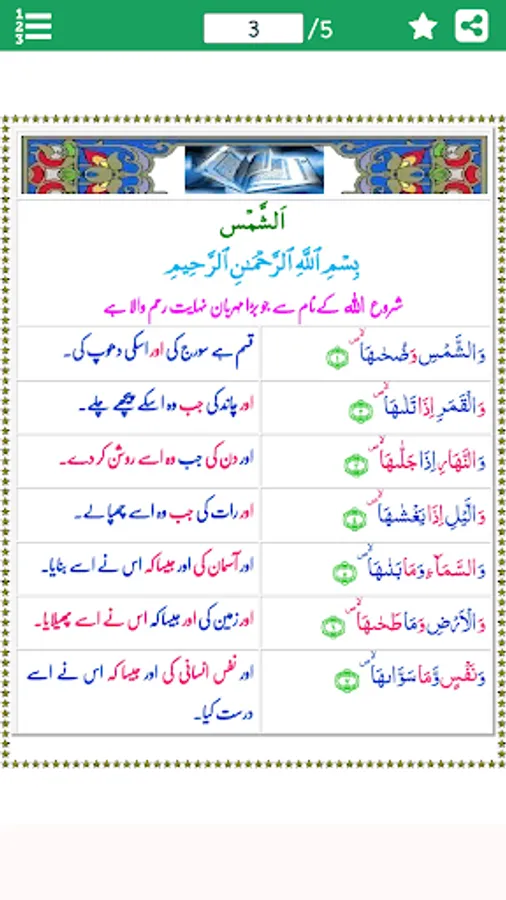 1
2
3
3 /5
اَلشَّمْس
بِسْمِ ٱللَّهِ ٱلرَّحْمَٰنِ ٱلرَّحِيمِ
شروع اللہ کے نام سے جو بڑا مہربان نہایت رحم والا ہے
وَالشَّمْسِ وَضُحٰىهَا ۙ ﴿۱﴾ قسم ہے سورج کی اور اسکی دھوپ کی۔
وَالْقَمَرِ اِذَا تَلٰىهَا ۙ ﴿۲﴾ اور چاند کی جب وہ اسکے پیچھے چلے۔
وَالنَّهَارِ اِذَا جَلّٰىهَا ۙ ﴿۳﴾ اور دن کی جب وہ اسے روشن کر دے۔
وَالَّيْلِ اِذَا يَغْشٰىهَا ۙ ﴿۴﴾ اور رات کی جب وہ اسے چھپا لے۔
وَالسَّمَآءِ وَمَا بَنٰىهَا ۙ ﴿۵﴾ اور آسمان کی اور جیسا کہ اس نے اسے بنایا۔
وَالْاَرْضِ وَمَا طَحٰىهَا ۙ ﴿۶﴾ اور زمین کی اور جیسا کہ اس نے اسے پھیلایا۔
وَنَفْسٍ وَّمَا سَوّٰىهَا ۙ ﴿۷﴾ اور نفس انسانی کی اور جیسا کہ اس نے اسے
درست کیا۔